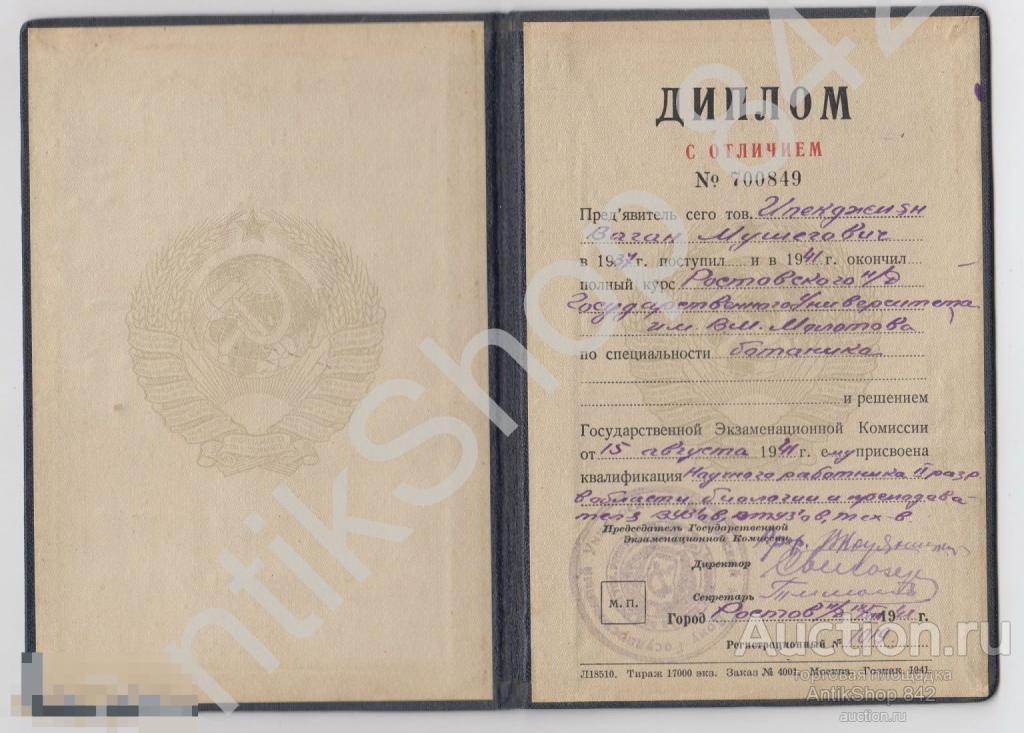 ДИПЛОМ
С ОТЛИЧИЕМ
№ 700849
Пред'явитель сего тов. Ипекджиян
Ваган Мушегович
в 1937 г. поступил и в 1941 г. окончил
полный курс Ростовского н/Д
Государственного Университета
им. В.М. Молотова
по специальности ботаника
и решением
Государственной Экзаменационной Комиссии
от 15 августа 1941 г. ему присвоена
квалификация Научного работника II разр
в области биологии и преподава-
теля ВУЗ'ов, ВТУЗ'ов, тех-в
Председатель Государственной
Экзаменационной Комиссии
Директор
Секретарь
М. П.
Город Ростов н/Д 1941 г.
Регистрационный № 1014
Л18510. Тираж 17000 экз. Заказ № 4001. Москва. Гознак. 1941.
AntikShop 842
Auction.ru
торговая площадка
AntikShop 842
auction.ru